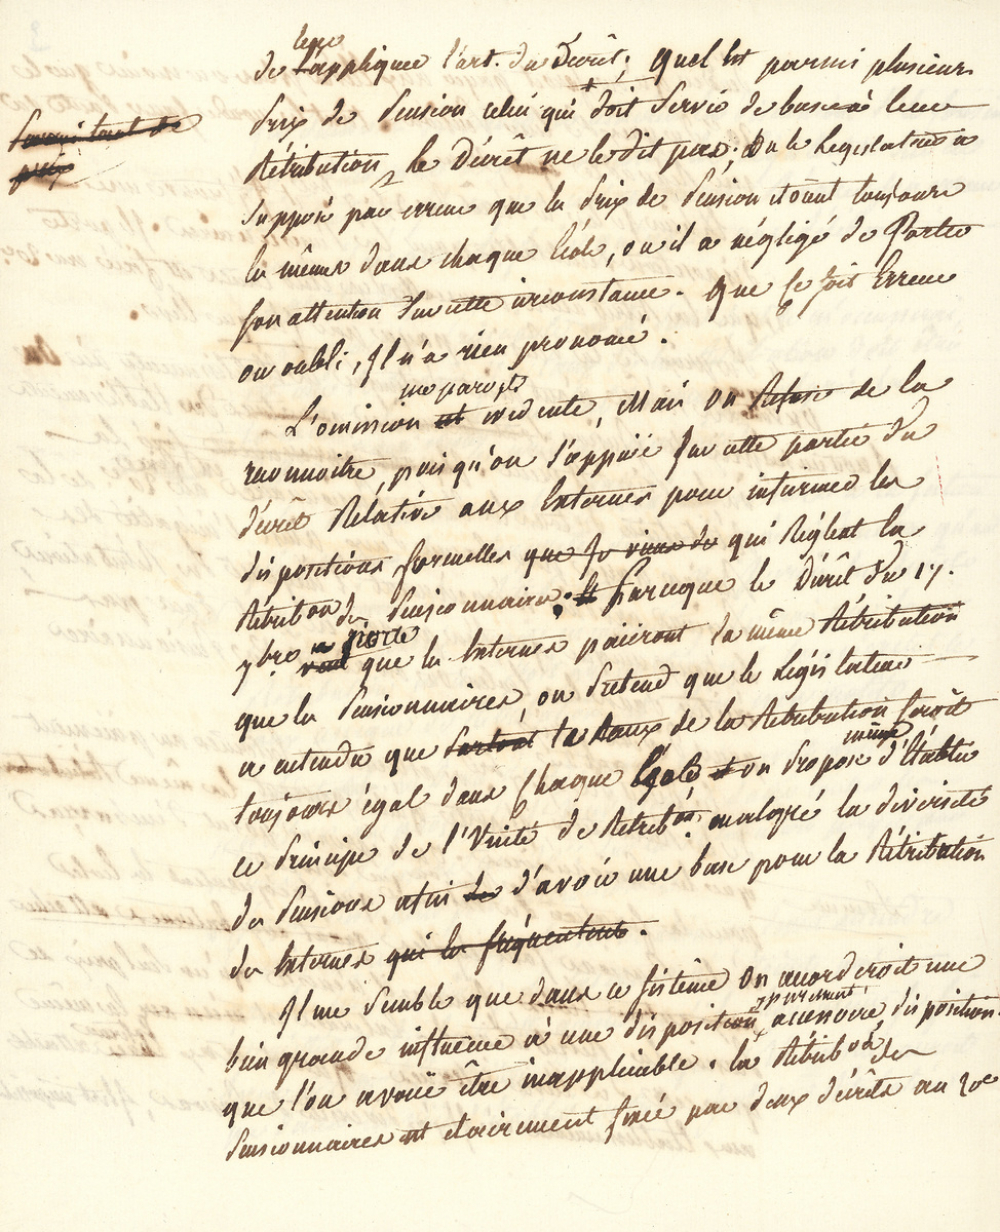 de leur appliquer l'art. du Décrêt; quel est parmi plusieurs
prix de Pension celui qui doit servir de base à leur
Rétribution, le Décrêt ne le dit pas; ou le Législateur a
supposé par erreur que le prix de Pension étoit toujours
le même dans chaque Ecole, ou il a négligé de Porter
son attention sur cette circonstance. Que ce soit Erreur
ou oubli, Il n'a rien prononcé.
L'omission me paroit evidente, Mais on refuse de la
reconnoitre, puisqu'on s'appuie sur cette partie du
décret Rélative aux Externes pour infirmer les
dispositions formelles que je viens de qui Règlent la
Rétribon des Pensionnaires. Parceque le Décrêt du 17.
7bre. porte que les Externes paieront la même Rétribution
que les Pensionnaires, on prétend que le Législateur
a entendu que partout le taux de la Rétribution seroit
toujours égal dans chaque Ecole on propose même d'établir
ce Principe de l'Unité de Rétribon. malgré la diversité
des Pensions afin de d'avoir une base pour la Rétribution
des Externes qui les fréquentent.
Il me semble que dans ce sistême on accorderoit une
bien grande influence à une disposition purement accessoire, disposition
que l'on avoue être inapplicable. la Rétribon des
Pensionnaires est clairement fixée par deux décrêts au 20e